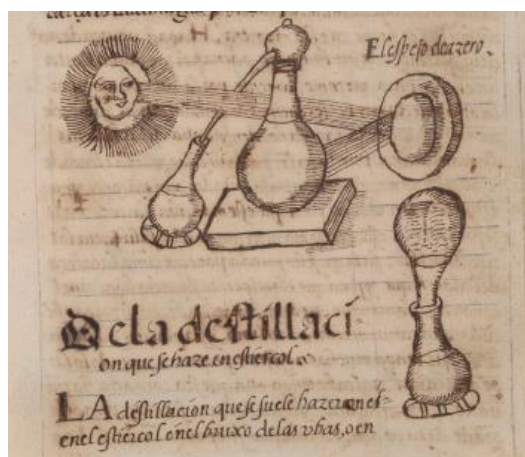 El espejo de azero.
De la destillaci-
on que se haze en estiercol.
LA destillacion que se suele hazer en es-
en el estiercol o en el bruxo de las vbas, o en